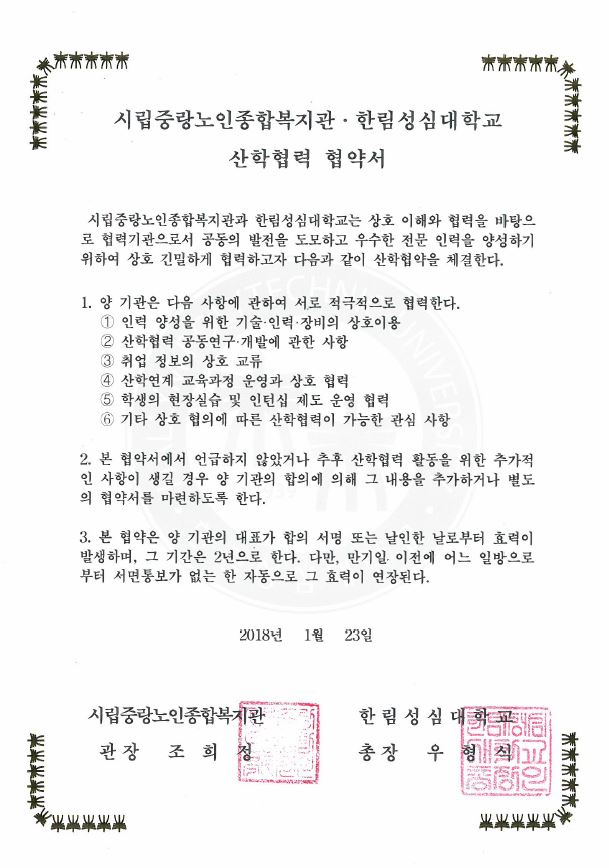 시립중랑노인종합복지관 · 한림성심대학교
산학협력 협약서
시립중랑노인종합복지관과 한림성심대학교는 상호 이해와 협력을 바탕으
로 협력기관으로서 공동의 발전을 도모하고 우수한 전문 인력을 양성하기
위하여 상호 긴밀하게 협력하고자 다음과 같이 산학협약을 체결한다.
1. 양 기관은 다음 사항에 관하여 서로 적극적으로 협력한다.
① 인력 양성을 위한 기술·인력·장비의 상호이용
② 산학협력 공동연구·개발에 관한 사항
③ 취업 정보의 상호 교류
④ 산학연계 교육과정 운영과 상호 협력
⑤ 학생의 현장실습 및 인턴십 제도 운영 협력
⑥ 기타 상호 협의에 따른 산학협력이 가능한 관심 사항
2. 본 협약서에서 언급하지 않았거나 추후 산학협력 활동을 위한 추가적
인 사항이 생길 경우 양 기관의 합의에 의해 그 내용을 추가하거나 별도
의 협약서를 마련하도록 한다.
3. 본 협약은 양 기관의 대표가 합의 서명 또는 날인한 날로부터 효력이
발생하며, 그 기간은 2년으로 한다. 다만, 만기일 이전에 어느 일방으로
부터 서면통보가 없는 한 자동으로 그 효력이 연장된다.
2018년 1월 23일
시립중랑노인종합복지관 한림성심대학교
관장 조희정 총장 우형식